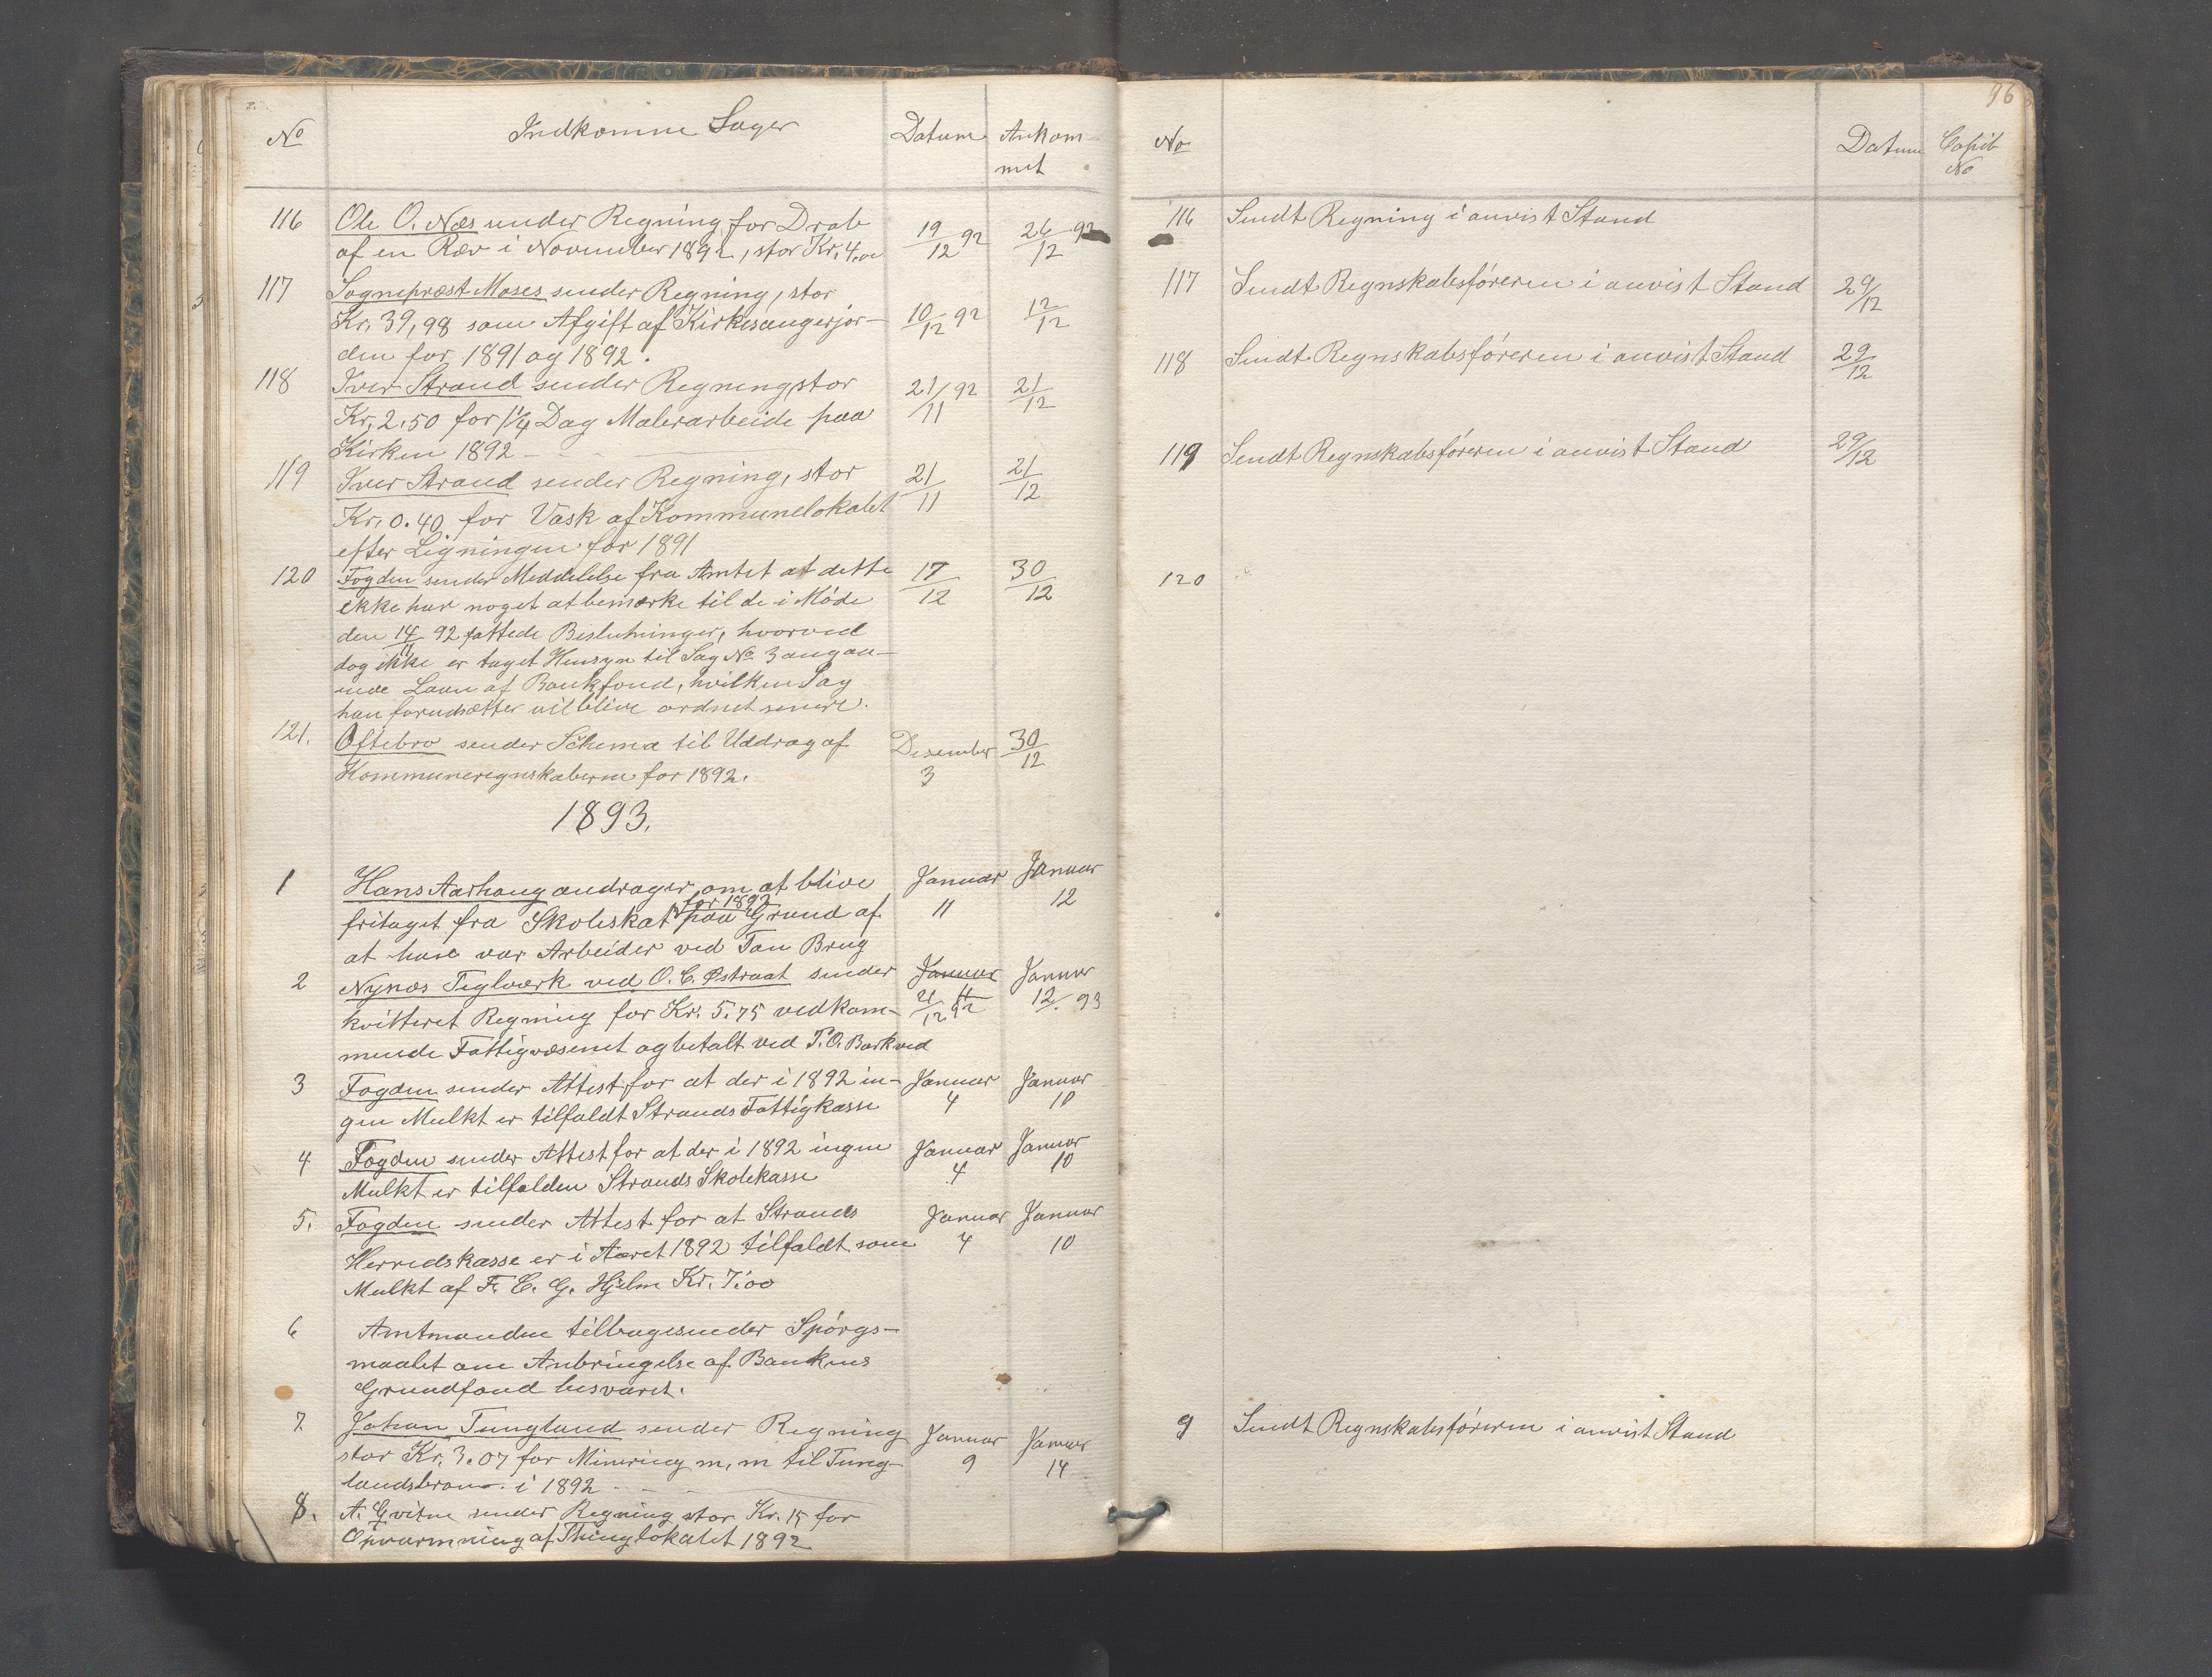 No Indkomne Sager Datum Ankom-
met
116 Ole O. Næs sender Regning for Drab 19/12 92 26/12 92
af en Ræv i November 1892, stor Kr. 4,00
117 Sogneprest Moses sender Regning, stor
Kr. 39,98 som Afgift af Kirkesangerjor- 10/12 92 12/12
den for 1891 og 1892.
118 Iver Strand sender Regning, stor 21/11 92 21/12
Kr. 2.50 for 1 1/4 Dag Malerarbeide paa
Kirken 1892
119 Iver Strand sender Regning, stor 21/11 21/12
Kr. 0.40 for Vask af Kommunelokalet
efter Ligningen for 1891
120 Fogden sender Meddelelse fra Amtet at dette 17/12 30/12
ikke har noget at bemærke til de i Møde
den 14/11 92 fattede Beslutninger, hvorved
dog ikke er taget Hensyn til Sag No 3 angaa-
ende Laan af Bankfond, hvilken Sag
han forudsætter vil blive ordnet senere.
121. Oftebro sender Schema til Uddrag af Desember 30/12
Kommuneregnskaberne for 1892. 3
1893.
1 Hans Aarhaug andrager om at blive Januar Januar
fritaget fra Skoleskat for 1892 paa Grund af 11 12
at have var Arbeider ved Tau Brug
2 Nynæs Teglværk ved O. C. Østraat sender Januar Januar
kvitteret Regning for Kr. 5.75 vedkom- 21/12 92 11 12/. 93
mende Fattigvæsenet og betalt ved T. O. Barkved
3 Fogden sender Attest for at der i 1892 in- Januar Januar
gen Mulkt er tilfaldt Strands Fattigkasse 4 10
4 Fogden sender Attest for at der i 1892 ingen Januar Januar
Mulkt er tilfalden Strands Skolekasse 4 10
5. Fogden sender Attest for at Strands Januar Januar
Herredskasse er i Aaret 1892 tilfaldt som 4 10
Mulkt af F. C. G. Hjelm Kr. 7.00
6 Amtmanden tilbagesender Spørgs-
maalet om Anbringelse af Bankens
Grundfond besvaret.
7 Johan Tungland sender Regning Januar Januar
stor Kr. 3.07 for Minering m, m til Tung- 9 14
landsbroen i 1892
8. A. Gvitne sender Regning stor Kr. 15 for
Opvarmning af Thinglokalet 1892
96
No Datum Copib
No
116 Sendt Regning i anvist Stand
117 Sendt Regnskabsføreren i anvist Stand 29/12
118 Sendt Regnskabsføreren i anvist Stand 29/12
119 Sendt Regnskabsføreren i anvist Stand 29/12
120
9 Sendt Regnskabsføreren i anvist Stand